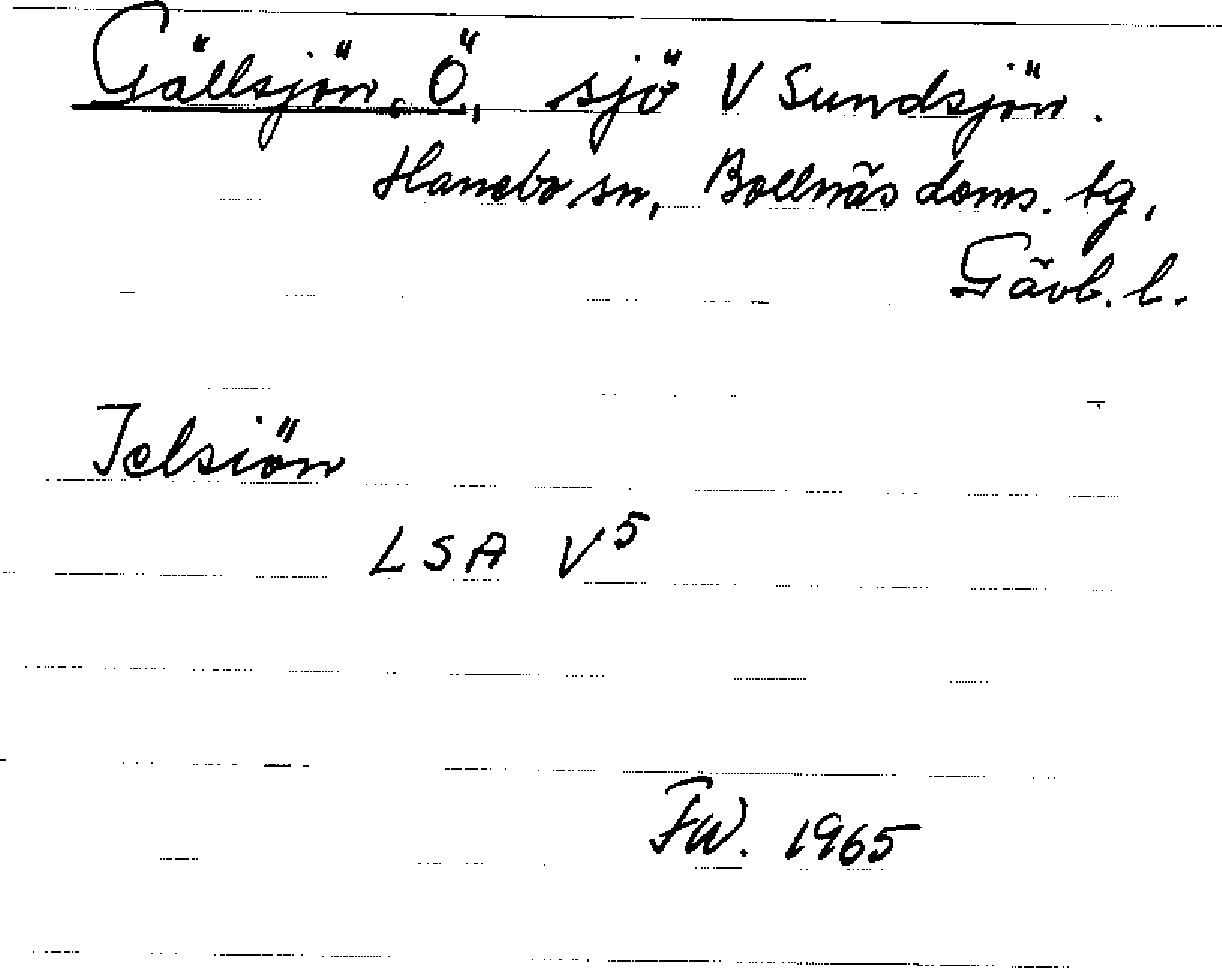 Gällsjön, Ö, sjö V Sundsjön.
Hanebo sn, Bollnäs doms. tg,
Gävb. l.
Jelsiön
LSA V5
FW. 1965